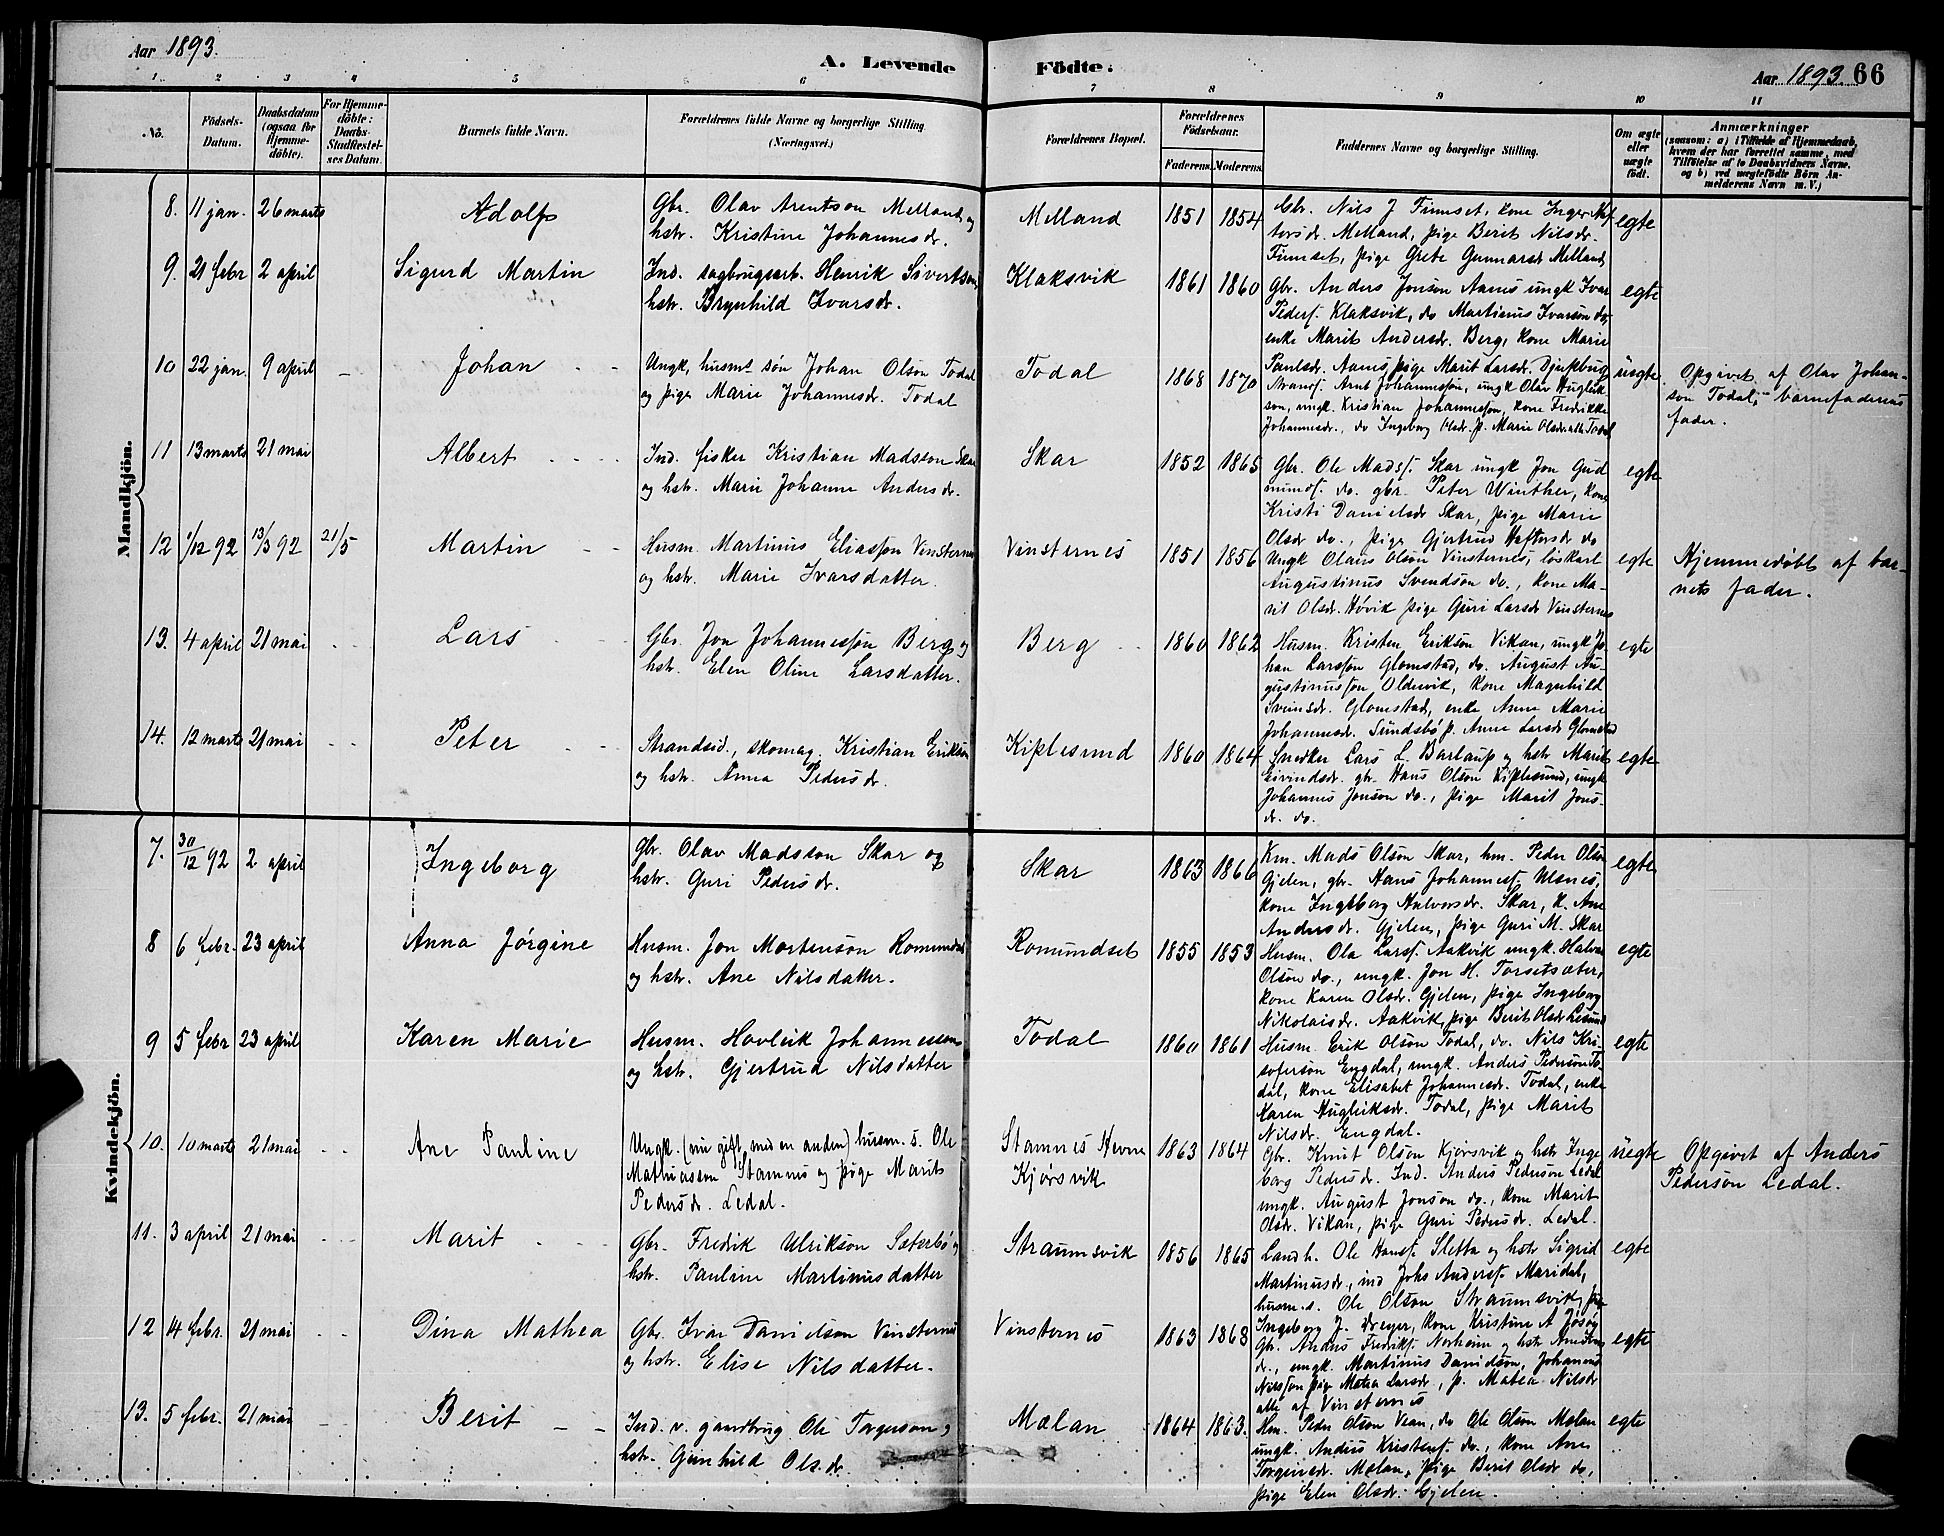 Aar 1893.
A. Levende Födte.
Aar 1893. 66
1 2 3 4 5 6 7 8 9 10 11
No.
Födsels-
Datum.
Daabsdatum
(ogsaa for
Hjemme-
döbte).
For Hjemme-
döbte:
Daabs-
Stadfæstel-
ses Datum.
Barnets fulde Navn.
Forældrenes fulde Navne og borgerlige Stilling
(Næringsvei.)
Forældrenes Bopæl.
Forældrenes
Födselsaar.
Faderens. Moderens.
Faddernes Navne og borgerlige Stilling.
Om ægte
eller
uægte
födt.
Anmærkninger
(saasom: a) i Tilfælde af Hjemmedaab,
hvem der har forrettet samme, med
Tilföielse af to Daabsvidners Navne,
og b) ved uægtefödte Börn An-
melderens Navn m. V.)
Mandkjön.
8. 11 jan. 26 marts
Adolf
Gbr. Olav Arentson Melland og
hstr. Kristine Johannesdr.
Melland
1851 1854
Gbr. Nils J Fumset, kone Inger
tersdr. Melland, pige Berit Nilsdr.
Fumset, pige Grete Gunnarsd Melland
egte
9. 21 febr 2 april
Sigurd Martin
Ind. sagbrugsarb. Henrik Sivertson
hstr. Brynhild Ivarsdr.
Klaksvik
1861 1860
Gbr. Anders Jonson Aanes ungk Ivar
Pedersf. Klaksvik, do Martinus Ivarson do,
enke Marit Andersdr. Berg, kone Marie
Paulsdr. Aanes pige Marit Larsdr.
egte
10 22 jan. 9 april -
Johan
Ungk, husm. søn Johan Olson Todal
og pige Marie Johannesdr. Todal
Todal
1868 1870
Arnt Johannesson, ungk Olav Hugleik
son, ungk. Kristian Johannesson, kone Fredrikke
Johannesdr., do Ingeborg Olsdr. p. Marie Olsdr. alle Todal
uegte
Opgivet af Olav Johan-
son Todal, barnefaderens
fader.
11 13 marts 21 mai
Albert
Ind. fisker Kristian Madsson Skar
og hstr. Marie Johanne Andersdr.
Skar
1852 1865
Gbr. Ole Madsf. Skar ungk Jon Gud
mundf. do. gbr. Peter Winther, kone
Kristi Danielsdr Skar, pige Marie
Olsdr do., pige Gjertrud do
egte
12 1/12 92 13/3 92 21/5
Martin
Husm. Martinus Eliasson Vinsternes
og hstr. Marie Ivarsdatter.
Vinsternes
1851 1856
Ungk Olaus Olson Vinsternes, løskarl
Augustinus Svendsøn do., kone Ma-
rit Olsdr. Høvik pige Guri Larsdr Vinsternes
egte
Hjemmedøbt af bar-
nets fader.
13. 4 april 21 mai
Lars
Gbr. Jon Johannesson Berg og
hstr. Elen Oline Larsdatter.
Berg
1860 1862
Husm. Kristen Erikson Vikan, ungk Jo
han Larsson Glomstad, do. August Au-
gustinusson Oldervik, kone Magnhild
Sveinsdr. Glomstad, enke Anne Marie
Johannesdr. Sundsbö p. Anne Larsdr Glomstad
egte
14. 12 marts 21 mai
Peter
Strandsid., skomag. Kristian Erikson
og hstr. Anna Pedersdr.
Kiplesund
1860 1864
Snedker Lars L. Barlaup og hstr Marit
Eivindsdr. gbr. Hans Olson Kiplesund, ungk
Johannes Jonson do., pige Marit Jons-
dr. do.
egte
Kvindekjön.
7. 30/12 92 2 april
Ingeborg
Gbr. Olav Madsson Skar og
hstr. Guri Pedersdr.
Skar
1863 1866
Km. Mads Olson Skar, hm. Peder Olson
Gjelen, gbr. Hans Johannesf. Ulsnes,
kone Ingeborg Halvorsdr. Skar, k. Ane
Andersdr. Gjelen, pige Guri M. Skar
egte
8 6 febr. 23 april
Anna Jørgine
Husm. Jon Mortenson Romundset
og hstr. Ane Nilsdatter.
Romundset
1855 1853
Husm. Ola Larsf. Aakvik ungk. Halvor
Olson do., ungk. Jon H. Torsetsæter,
kone Karen Olsdr. Gjelen, pige Ingeborg
Nikolaisdr. Aakvik, pige Berit Olsdr Lesund
egte
9 5 febr 23 april
Karen Marie
Husm. Hovleik Johannesson
og hstr. Gjertrud Nilsdatter
Todal
1860 1861
Husm. Erik Olson Todal, do. Nils Kri-
soferson Engdal, ungk. Anders Pederson To-
dal, kone Elisabet Johannesdr. Todal, enke
Karen Hugleiksdr. Todal, pige Marit
Nilsdr. Engdal.
egte
10. 10 marts 21 mai
Ane Pauline
Ungk. (nu gift med en anden) husm. s. Ole
Mathiasen Stamnes og pige Marit
Pedersdr. Ledal.
Stamnes Hevne
Kjørsvik
1863 1864
Gbr. Knut Olson Kjørsvik og hstr Inge
borg Pedersdr. Ind. Anders Pederson Ledal
ungk. August Jonson do., kone Marit
Olsdr. Vikan, pige Guri Pedersdr. Ledal.
uegte
Opgivet af Anders
Pederson Ledal.
11. 3 april 21 mai
Marit
Gbr. Fredik Ulrikson Sæterbø og
hstr. Pauline Martinusdatter
Straumsvik
1856 1865
Landh. Ole Hansf. Sletta og hstr Sigrid
Martinusdr., ind Johs Andersf. Maridal,
husm. s. Ole Olson Straumsvik, pige
Ingeborg J. Dreyer, kone Kristine A Jøsøy
egte
12 14 febr. 21 mai
Dina Mathea
Gbr. Ivar Danielson Vinsternes
og hstr. Elise Nilsdatter.
Vinsternes
1863 1863
Gbr. Anders Fredriksf. Norheim og hstr
dr., ungk. Martinus Davidson, Johannes
Nilsson pige Matea Larsdr, p. Matea Nilsdr
alle af Vinsternes
egte
13. 5 febr. 21 mai
Berit
Ind. v. gaardbrug Ole Torgerson og
hstr. Gunhild Olsdr.
Mælan
1864 1863.
Hm. Peder Olson Vean, do Ole Olson Mælan
ungk. Anders Kristensf. do., kone Ane
Torgersdr. Mælan, pige Berit Olsdr do,
pige Elen Olsdr. Gjelen.
egte